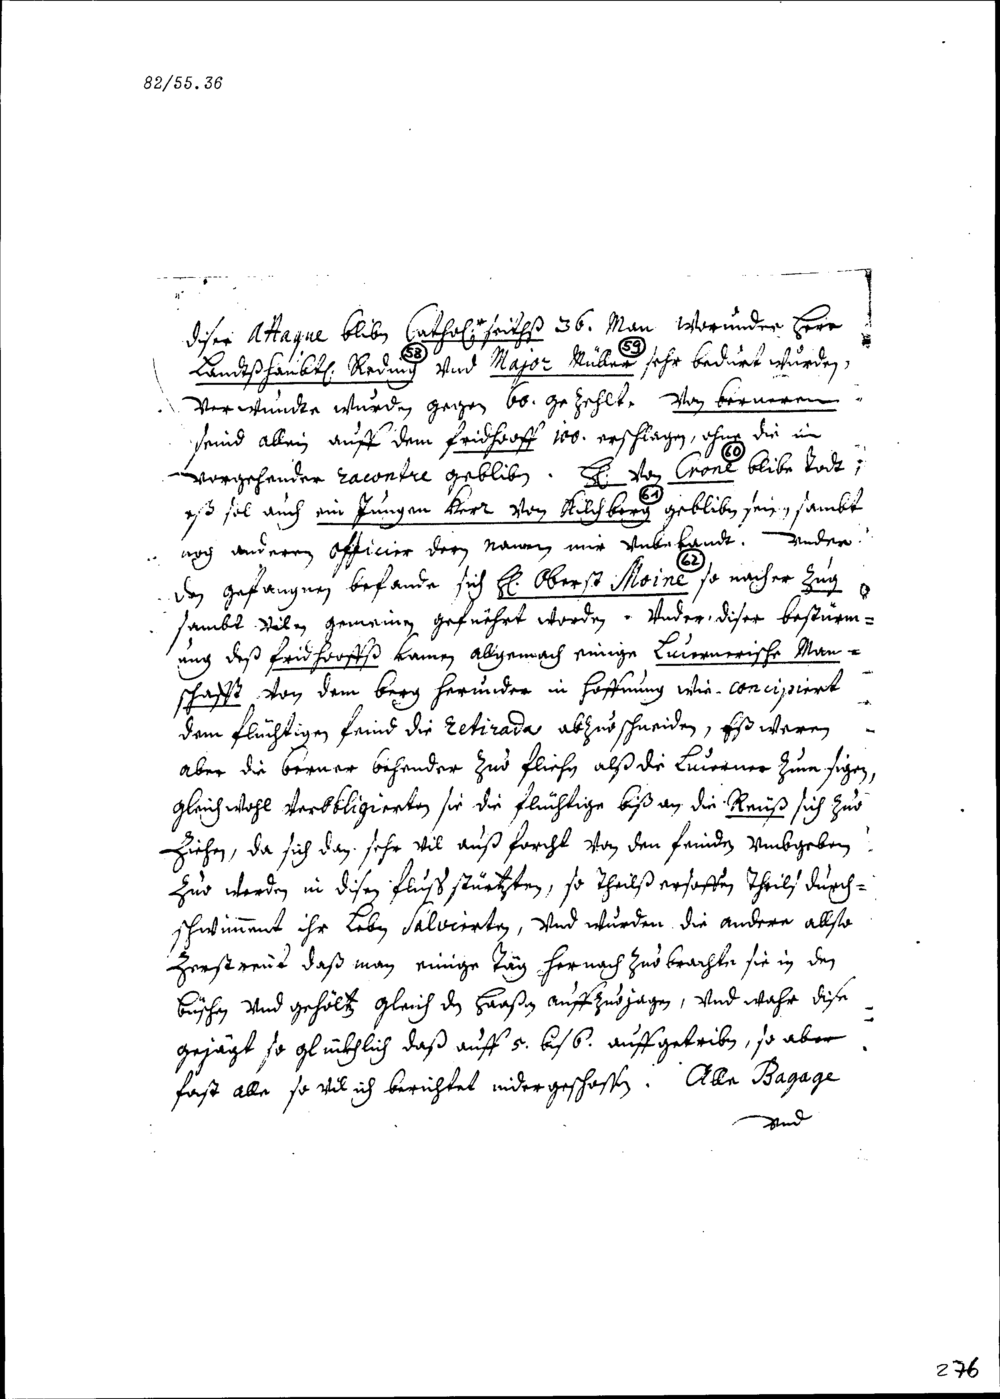 82/55.36
diser Attaque blibn Catholr seithß 36. Man worunder Herr
Landtßhaubtl: Reding 58 vnd Major Müller 59 sehr bedurt wurden,
verwundte wurden gegen 60. gezehlt. Von berneren
seind allein auff dem fridhooff 100. erschlagen, ohne die in
vorgehender racontre gebliben. H: von Crone 60 blibe todt;
eß sol auch ein Jungen Herr von Kilchberg 61 gebliben sein, sambt
noch anderen officier deren namen mir vnbekandt. Vnder
den gefangnen befande sich H: Oberst Moine 62 so nacher Zug
sambt vilen gemeinen gefüehrt worden. Vnder diser bestürm=
ung deß fridhooffß kamen allgemach einige Lucernerische Man=
schafft von dem berg herunder in hoffnung wie concipiert
dem flüchtigen feind die retirada abzuoschneiden, Eß waren
aber die berner behender zuo fliehen alß die Lucerner zum sigen,
gleichwohl verobligierten sie die flüchtige biß an die Reüß sich zuo
ziehen, da sich dan sehr vil auß forcht von den feinden vmbgeben
zuo werden in disen fluss stürtzten, so theilß ersoffen theilß durch=
schwimment ihr Leben salvierten, vnd wurden die andere allso
zerstreüt daß man einige täg hernach zuobrachte sie in den
büschen vnd gehöltz gleich den haasen auffzuojagen, vnd wahr dise
gejägt so glückhlich daß auff 5. biß 6. auffgetriben, so aber
fast alle so vil ich berichtet nidergeschossen. Alle Bagage
vnd
276